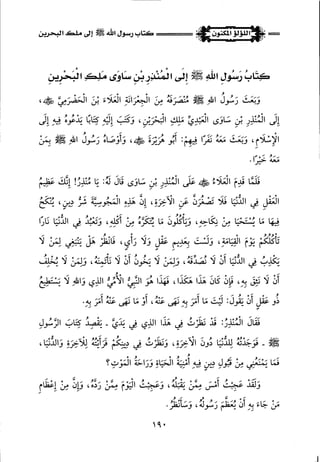 كتاب رسول الله ﷺ إلى ملك البحرين
اللؤلؤ المكنون
كتاب رَسُولِ اللهِ ﷺ إلى المُنْذِرِ بْنِ سَاوَى مَلِكِ البَحْرَيْنِ
وَبَعَثَ رَسُولُ اللهِ ﷺ مُنْصَرَفَهُ مِنَ الجِعْرَانَةِ العَلَاءَ بْنَ الحَضْرَمِيِّ ﷺ،
إلى المُنْذِرِ بْنِ سَاوَى العَبْدِيِّ مَلِكِ البَحْرَيْنِ، وَكَتَبَ إِلَيْهِ كِتَابًا يَدْعُوهُ فِيهِ إلى
الإِسْلَامِ، وَبَعَثَ مَعَهُ نَفَرًا فِيهِمْ: أَبُو هُرَيْرَةَ ﷺ، وَأَوْصَاهُ رَسُولُ اللهِ ﷺ بِمَنْ
مَعَهُ خَيْرًا.
فَلَمَّا قَدِمَ العَلَاءُ ﷺ عَلَى المُنْذِرِ بْنِ سَاوَى قَالَ لَهُ: يَا مُنْذِرُ! إِنَّكَ عَظِيمُ
العَقْلِ فِي الدُّنْيَا فَلَا تَصْغُرَنَّ عَنِ الآخِرَةِ، إِنَّ هَذِهِ المَجُوسِيَّةَ شَرُّ دِينٍ، يُنْكَحُ
فِيهَا مَا يُسْتَحْيَا مِنْ نِكَاحِهِ، وَيَأْكُلُونَ مَا يُتَكَرَّهُ مِنْ أَكْلِهِ، وَتَعْبُدُونَ فِي الدُّنْيَا نَارًا
تَأْكُلُكُمْ يَوْمَ القِيَامَةِ، وَلَسْتَ بِعَدِيمِ عَقْلٍ وَلَا رَأْيٍ، فَانْظُرْ هَلْ يَنْبَغِي لِمَنْ لَا
يَكْذِبُ فِي الدُّنْيَا أَنْ لَا نُصَدِّقَهُ، وَلِمَنْ لَا يَخُونُ أَنْ لَا نَأْتَمِنَهُ، وَلِمَنْ لَا يُخْلِفُ
أَنْ لَا نَثِقَ بِهِ، فَإِنْ كَانَ هَذَا هَكَذَا، فَهَذَا هُوَ النَّبِيُّ الأُمِّيُّ الذِي وَاللهِ لَا يَسْتَطِيعُ
ذُو عَقْلٍ أَنْ يَقُولَ: لَيْتَ مَا أَمَرَ بِهِ نَهَى عَنْهُ، أَوْ مَا نَهَى عَنْهُ أَمَرَ بِهِ.
فَقَالَ المُنْذِرُ: قَدْ نَظَرْتُ فِي هَذَا الذِي فِي يَدِي - يَقْصِدُ كِتَابَ الرَّسُولِ
ﷺ - فَوَجَدْتُهُ لِلدُّنْيَا دُونَ الآخِرَةِ، وَنَظَرْتُ فِي دِينِكُمْ فَرَأَيْتُهُ لِلْآخِرَةِ وَالدُّنْيَا،
فَمَا يَمْنَعُنِي مِنْ قَبُولِ دِينٍ فِيهِ أُمْنِيَّةُ الحَيَاةِ وَرَاحَةُ المَوْتِ؟
وَلَقَدْ عَجِبْتُ أَمْسِ مِمَّنْ يَقْبَلُهُ، وَعَجِبْتُ اليَوْمَ مِمَّنْ رَدَّهُ، وَإِنَّ مِنْ إِعْظَامِ
مَنْ جَاءَ بِهِ أَنْ يُعَظَّمَ رَسُولُهُ، وَسَأَنْظُرُ.
١٩٠